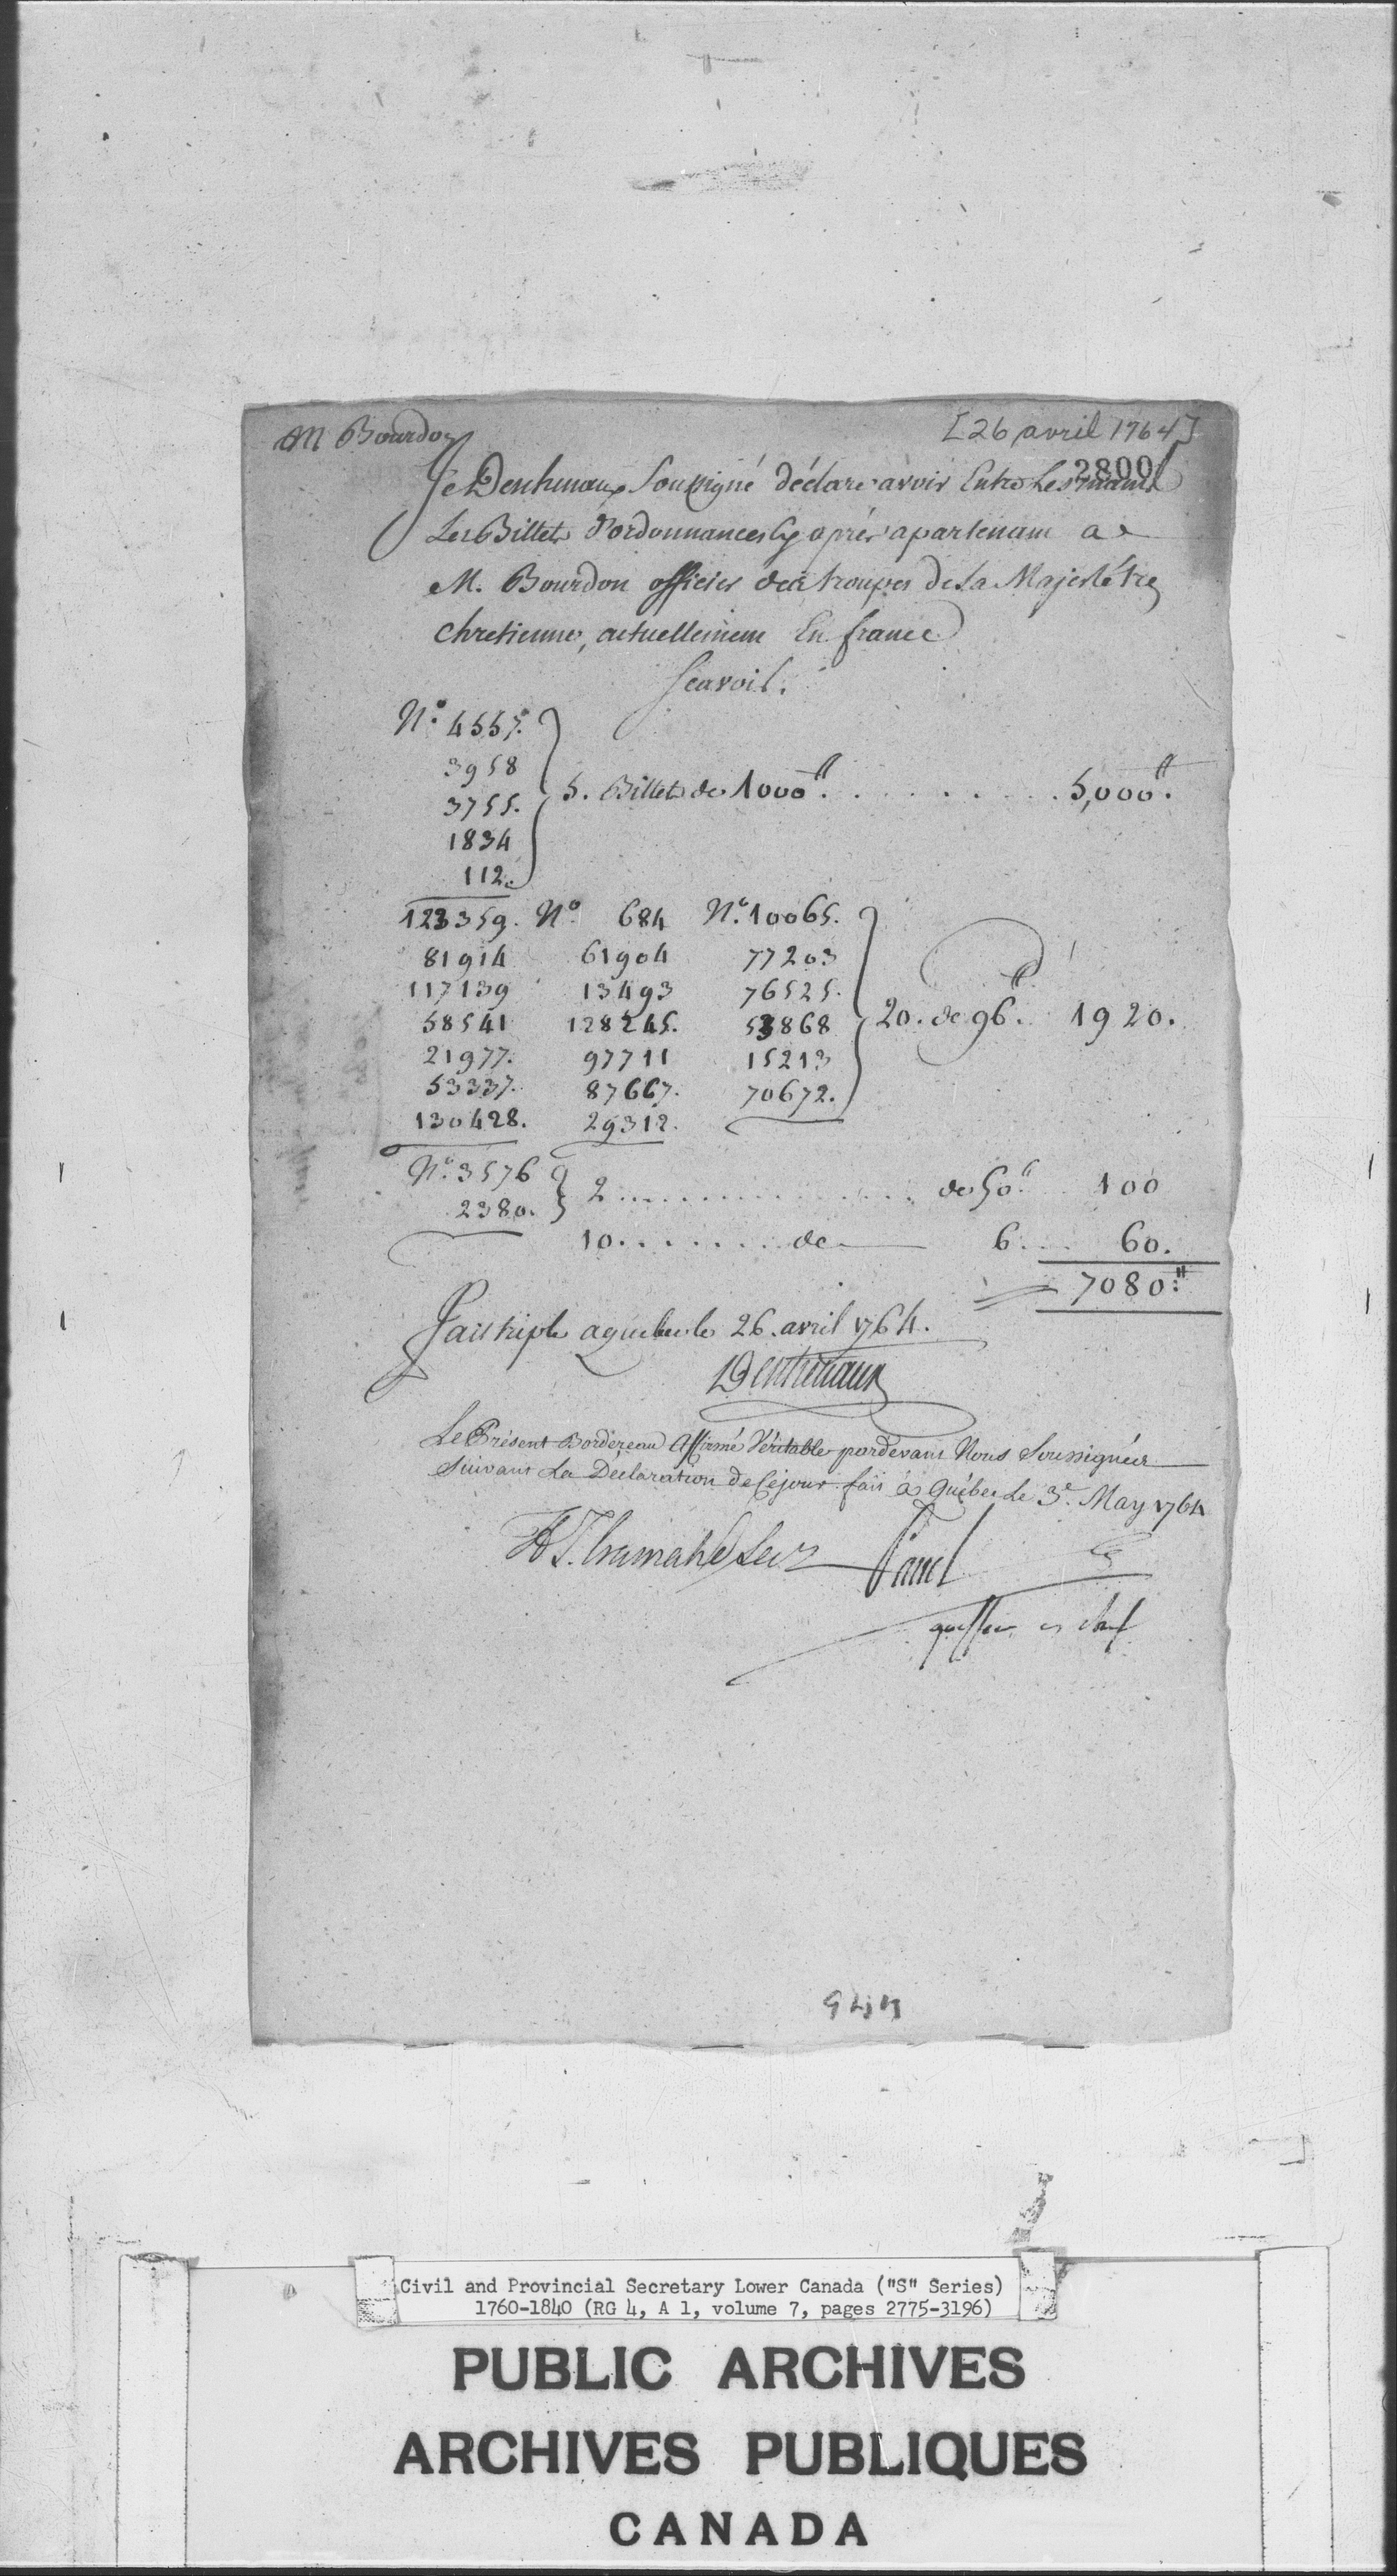 M Bourdon
[26 avril 1764]
2800
Je Dentremaux Soussigné déclare avoir Entre Les mains
Les Billets d'ordonnances Cy après apartenant a
M. Bourdon officier des troupes de Sa Majesté tres
chretienne, actuellement En france
Scavoir.
N.º 4557.
3958
3755.
1834
112.
5. Billets de 1000ᵗᵗ. . . . . . . . . 5,000ᵗᵗ.
123359. Nº 684 N.º 10065.
81914 61904 77203
117139 13493 76525.
58541 128245. 53868 20. de 96ᵗᵗ. 1920.
21977. 97711 15213
53337. 87667. 70672.
130428. 29312.
N.º 3576
2380. 2 . . . . . . . . . . de 50ᵗᵗ 100
10 . . . . . . . de 6 . . . 60.
7080.ᵗᵗ
Fait triple a quebec le 26. avril 1764.
Dentremaux
Le Présent Bordereau Affirmé Véritable pardevant Nous Soussignés
Suivant La Déclaration de Cejour fait à Québec Le 3.ᵉ May 1764
H T. Cramahé Secr Panet
greffier en chef
944
Civil and Provincial Secretary Lower Canada ("S" Series)
1760-1840 (RG 4, A 1, volume 7, pages 2775-3196)
PUBLIC ARCHIVES
ARCHIVES PUBLIQUES
CANADA